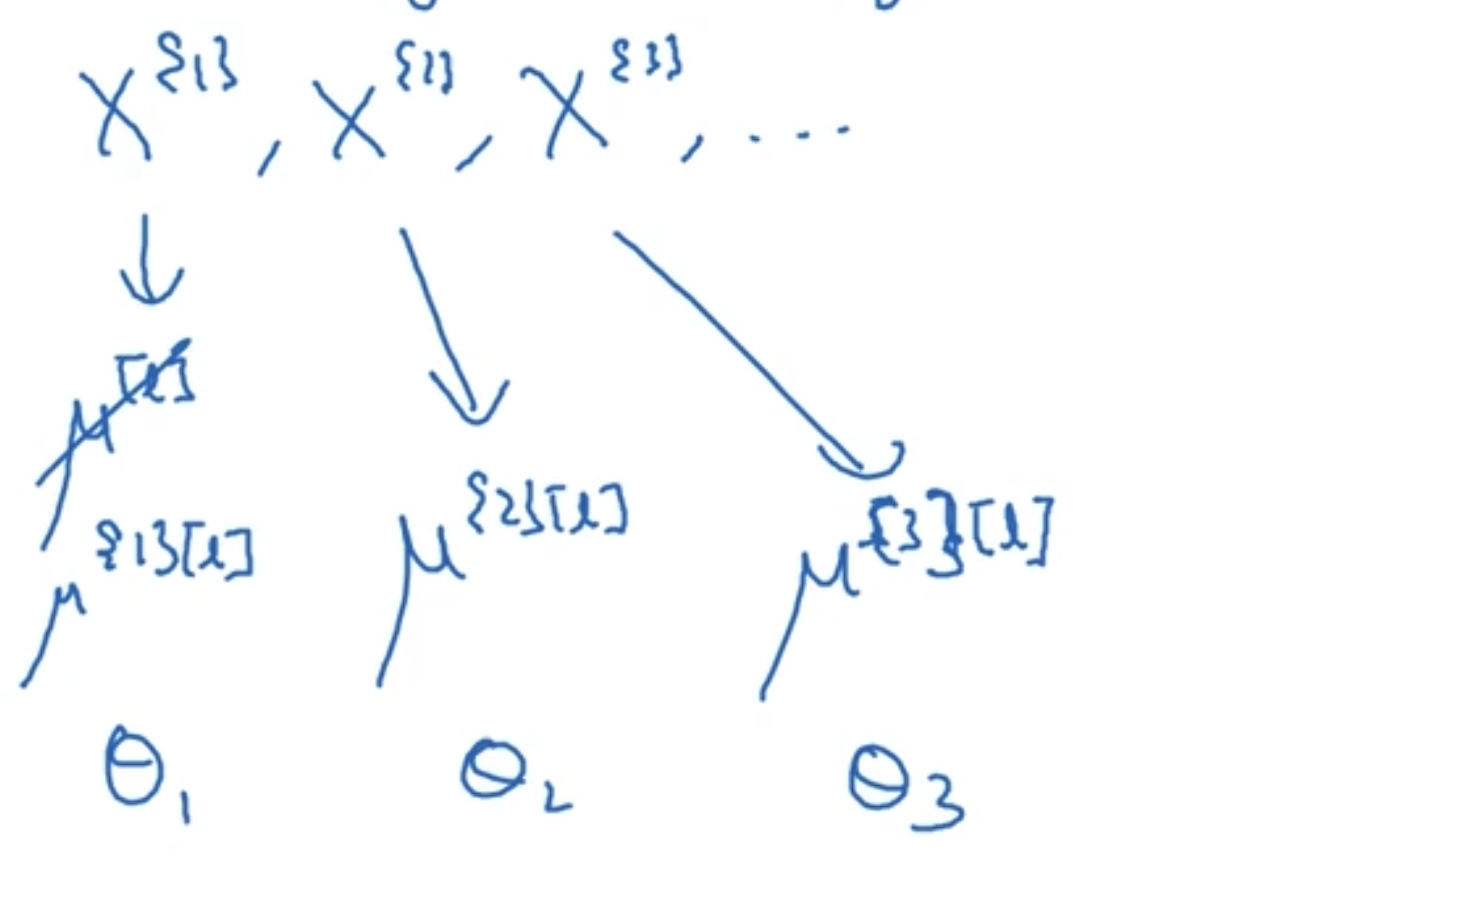 X^{1}, X^{2}, X^{3}, ....
μ^[l]
μ^{1}[l] μ^{2}[l] μ^{3}[l]
θ₁ θ₂ θ₃